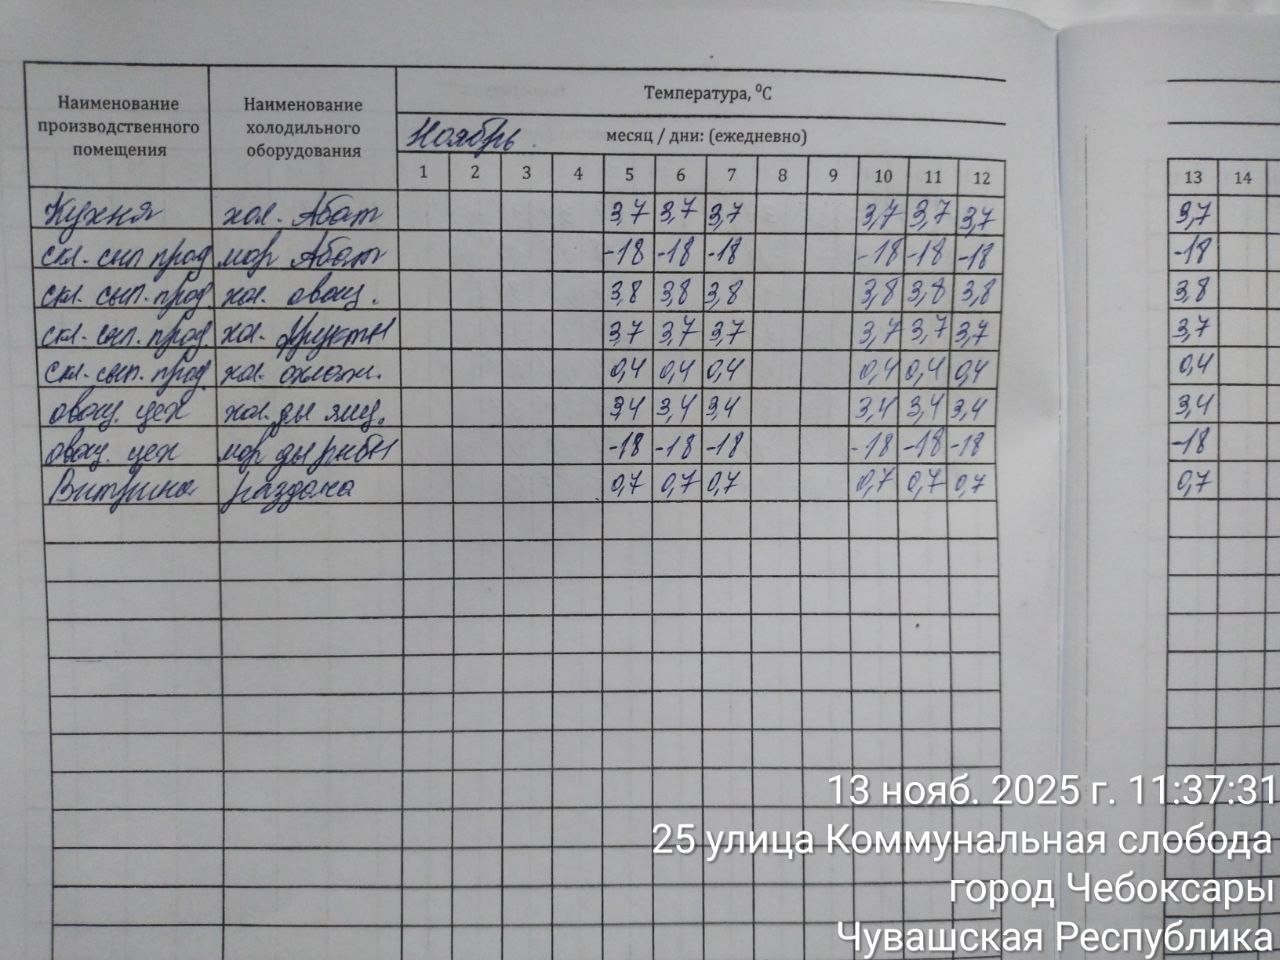 Наименование производственного помещения Наименование холодильного оборудования Температура, ⁰С
Ноябрь месяц / дни: (ежедневно)
1 2 3 4 5 6 7 8 9 10 11 12 13 14
Кухня хол. Абат 3,7 3,7 3,7 3,7 3,7 3,7 3,7
скл. сып прод мор Абат -18 -18 -18 -18 -18 -18 -18
скл. сып. прод хол. овощ. 3,8 3,8 3,8 3,8 3,8 3,8 3,8
скл. сып. прод хол. фрукты 3,7 3,7 3,7 3,7 3,7 3,7 3,7
скл. сып. прод. хол. охлажд. 0,4 0,4 0,4 0,4 0,4 0,4 0,4
овощ. цех хол. ды яиц. 3,4 3,4 3,4 3,4 3,4 3,4 3,4
овощ. цех мор ды рыбы -18 -18 -18 -18 -18 -18 -18
Витрина раздача 0,7 0,7 0,7 0,7 0,7 0,7 0,7
13 нояб. 2025 г. 11:37:31
25 улица Коммунальная слобода
город Чебоксары
Чувашская Республика